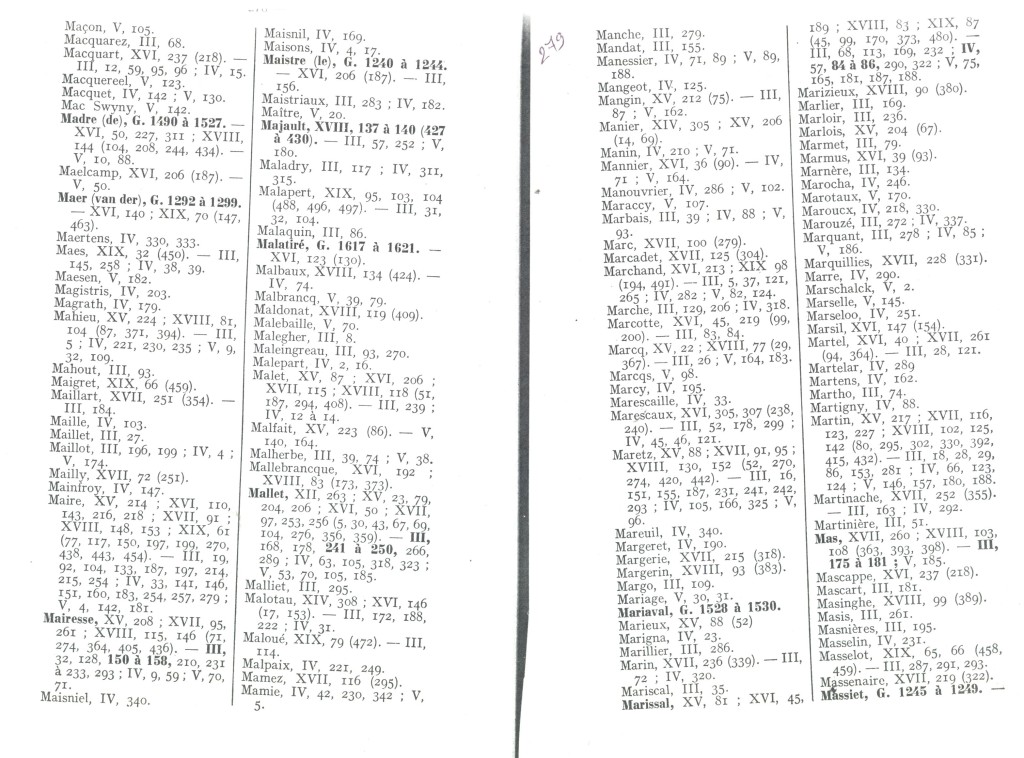 Maçon, V, 105.
Macquarez, III, 68.
Macquart, XVI, 237 (218). —
III, 12, 59, 95, 96 ; IV, 15.
Macquereel, V, 123.
Macquet, IV, 142 ; V, 130.
Mac Swyny, V, 142.
Madre (de), G. 1490 à 1527. —
XVI, 50, 227, 311 ; XVIII,
144 (104, 208, 244, 434). —
V, 10, 88.
Maelcamp, XVI, 206 (187). —
V, 50.
Maer (van der), G. 1292 à 1299.
— XVI, 140 ; XIX, 70 (147,
463).
Maertens, IV, 330, 333.
Maes, XIX, 32 (450). — III,
145, 258 ; IV, 38, 39.
Maesen, V, 182.
Magistris, IV, 203.
Magrath, IV, 179.
Mahieu, XV, 224 ; XVIII, 81,
104 (87, 371, 394). — III,
5 ; IV, 221, 230, 235 ; V, 9,
32, 109.
Mahout, III, 93.
Maigret, XIX, 66 (459).
Maillart, XVII, 251 (354). —
III, 184.
Maille, IV, 103.
Maillet, III, 27.
Maillot, III, 196, 199 ; IV, 4 ;
V, 174.
Mailly, XVII, 72 (251).
Mainfroy, IV, 147.
Maire, XV, 214 ; XVI, 110,
143, 216, 218 ; XVII, 91 ;
XVIII, 148, 153 ; XIX, 61
(77, 117, 150, 197, 199, 270,
438, 443, 454). — III, 19,
92, 104, 133, 187, 197, 214,
215, 254 ; IV, 33, 141, 146,
151, 160, 183, 254, 257, 279 ;
V, 4, 142, 181.
Mairesse, XV, 208 ; XVII, 95,
261 ; XVIII, 115, 146 (71,
274, 364, 405, 436). — III,
32, 128, 150 à 158, 210, 231
à 233, 293 ; IV, 9, 59 ; V, 70,
71.
Maisniel, IV, 340.
Maisnil, IV, 169.
Maisons, IV, 4, 17.
Maistre (le), G. 1240 à 1244.
— XVI, 206 (187). — III,
156.
Maistriaux, III, 283 ; IV, 182.
Maître, V, 20.
Majault, XVIII, 137 à 140 (427
à 430). — III, 57, 252 ; V,
180.
Maladry, III, 117 ; IV, 311,
315.
Malapert, XIX, 95, 103, 104
(488, 496, 497). — III, 31,
32, 104.
Malaquin, III, 86.
Malatiré, G. 1617 à 1621. —
XVI, 123 (130).
Malbaux, XVIII, 134 (424). —
IV, 74.
Malbrancq, V, 39, 79.
Maldonat, XVIII, 119 (409).
Malebaille, V, 70.
Malegher, III, 8.
Maleingreau, III, 93, 270.
Malepart, IV, 2, 16.
Malet, XV, 87 ; XVI, 206 ;
XVII, 115 ; XVIII, 118 (51,
187, 294, 408). — III, 239 ;
IV, 12 à 14.
Malfait, XV, 223 (86). — V,
140, 164.
Malherbe, III, 39, 74 ; V, 38.
Mallebrancque, XVI, 192 ;
XVIII, 83 (173, 373).
Mallet, XII, 263 ; XV, 23, 79,
204, 206 ; XVI, 50 ; XVII,
97, 253, 256 (5, 30, 43, 67, 69,
104, 276, 356, 359). — III,
168, 178, 241 à 250, 266,
289 ; IV, 63, 105, 318, 323 ;
V, 53, 70, 105, 185.
Malliet, III, 295.
Malotau, XIV, 308 ; XVI, 146
(17, 153). — III, 172, 188,
222 ; IV, 31.
Maloué, XIX, 79 (472). — III,
114.
Malpaix, IV, 221, 249.
Mamez, XVII, 116 (295).
Mamie, IV, 42, 230, 342 ; V,
5.
279
Manche, III, 279.
Mandat, III, 155.
Manessier, IV, 71, 89 ; V, 89,
188.
Mangeot, IV, 125.
Mangin, XV, 212 (75). — III,
87 ; V, 162.
Manier, XIV, 305 ; XV, 206
(14, 69).
Manin, IV, 210 ; V, 71.
Mannier, XVI, 36 (90). — IV,
71 ; V, 164.
Manouvrier, IV, 286 ; V, 102.
Maraccy, V, 107.
Marbais, III, 39 ; IV, 88 ; V,
93.
Marc, XVII, 100 (279).
Marcadet, XVII, 125 (304).
Marchand, XVI, 213 ; XIX 98
(194, 491). — III, 5, 37, 121,
265 ; IV, 282 ; V, 82, 124.
Marche, III, 129, 206 ; IV, 318.
Marcotte, XVI, 45, 219 (99,
200). — III, 83, 84.
Marcq, XV, 22 ; XVIII, 77 (29,
367). — III, 26 ; V, 164, 183.
Marcqs, V, 98.
Marcy, IV, 195.
Marescaille, IV, 33.
Marescaux, XVI, 305, 307 (238,
240). — III, 52, 178, 299 ;
IV, 45, 46, 121.
Maretz, XV, 88 ; XVII, 91, 95 ;
XVIII, 130, 152 (52, 270,
274, 420, 442). — III, 16,
151, 155, 187, 231, 241, 242,
293 ; IV, 105, 166, 325 ; V,
96.
Mareuil, IV, 340.
Margeret, IV, 190.
Margerie, XVII, 215 (318).
Margerin, XVIII, 93 (383).
Margo, III, 109.
Mariage, V, 30, 31.
Mariaval, G. 1528 à 1530.
Marieux, XV, 88 (52)
Marigna, IV, 23.
Marillier, III, 286.
Marin, XVII, 236 (339). — III,
72 ; IV, 320.
Mariscal, III, 35.
Marissal, XV, 81 ; XVI, 45,
189 ; XVIII, 83 ; XIX, 87
(45, 99, 170, 373, 480). —
III, 68, 113, 169, 232 ; IV,
57, 84 à 86, 290, 322 ; V, 75,
165, 181, 187, 188.
Marizieux, XVIII, 90 (380).
Marlier, III, 169.
Marloir, III, 236.
Marlois, XV, 204 (67).
Marmet, III, 79.
Marmus, XVI, 39 (93).
Marnère, III, 134.
Marocha, IV, 246.
Marotaux, V, 170.
Maroucx, IV, 218, 330.
Marouzé, III, 272 ; IV, 337.
Marquant, III, 278 ; IV, 85 ;
V, 186.
Marquillies, XVII, 228 (331).
Marre, IV, 290.
Marschalck, V, 2.
Marselle, V, 145.
Marseloo, IV, 251.
Marsil, XVI, 147 (154).
Martel, XVI, 40 ; XVII, 261
(94, 364). — III, 28, 121.
Martelar, IV, 289
Martens, IV, 162.
Martho, III, 74.
Martigny, IV, 88.
Martin, XV, 217 ; XVII, 116,
123, 227 ; XVIII, 102, 125,
142 (80, 295, 302, 330, 392,
415, 432). — III, 18, 28, 29,
86, 153, 281 ; IV, 66, 123,
124 ; V, 146, 157, 180, 188.
Martinache, XVII, 252 (355).
— III, 163 ; IV, 292.
Martinière, III, 51.
Mas, XVII, 260 ; XVIII, 103,
108 (363, 393, 398). — III,
175 à 181 ; V, 185.
Mascappe, XVI, 237 (218).
Mascart, III, 181.
Masinghe, XVIII, 99 (389).
Masis, III, 261.
Masnières, III, 195.
Masselin, IV, 231.
Masselot, XIX, 65, 66 (458,
459). — III, 287, 291, 293.
Massenaire, XVII, 219 (322).
Massiet, G. 1245 à 1249. —